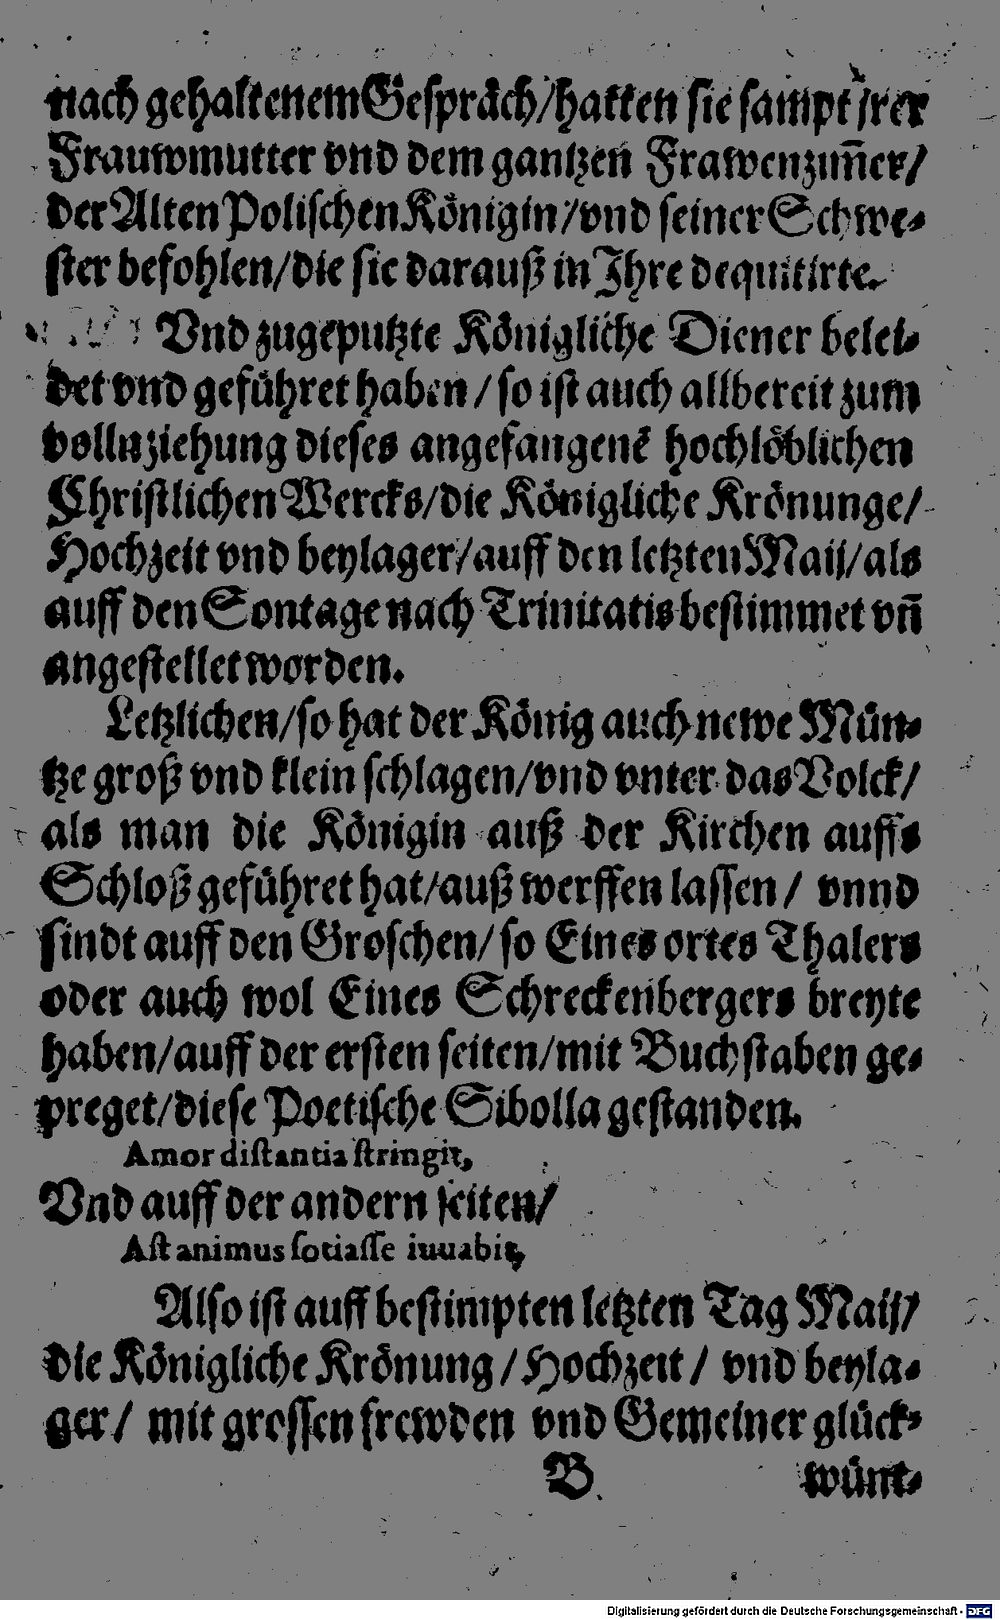 nach gehaltenem Gespräch/hatten sie sampt jrer
Frauwmutter vnd dem gantzen Frawenzim̃er/
der Alten Polischen Königin/vnd seiner Schwe⸗
ster befohlen/die sie darauß in Ihre dequitirte.
Vnd zugeputzte Königliche Diener belei⸗
det vnd geführet haben/so ist auch allbereit zum
vollnziehung dieses angefangenẽ hochlöblichen
Christlichen Wercks/die Königliche Krönunge/
Hochzeit vnd beylager/auff den letzten Maij/als
auff den Sontage nach Trinitatis bestimmet vñ
angestellet worden.
Letzlichen/so hat der König auch newe Mün⸗
tze groß vnd klein schlagen/vnd vnter das Volck/
als man die Königin auß der Kirchen auffs
Schloß geführet hat/auß werffen lassen/ vnnd
sindt auff den Groschen/so Eines ortes Thalers
oder auch wol Eines Schreckenbergers breyte
haben/auff der ersten seiten/mit Buchstaben ge⸗
preget/diese Poetische Sibolla gestanden.
Amor distantia stringit,
Vnd auff der andern seiten/
Ast animus sotiasse iuuabit,
Also ist auff bestimpten letzten Tag Maij/
die Königliche Krönung/Hochzeit/ vnd beyla⸗
ger/ mit grossen frewden vnd Gemeiner glück⸗
B
wünt⸗
Digitalisierung gefördert durch die Deutsche Forschungsgemeinschaft - DFG